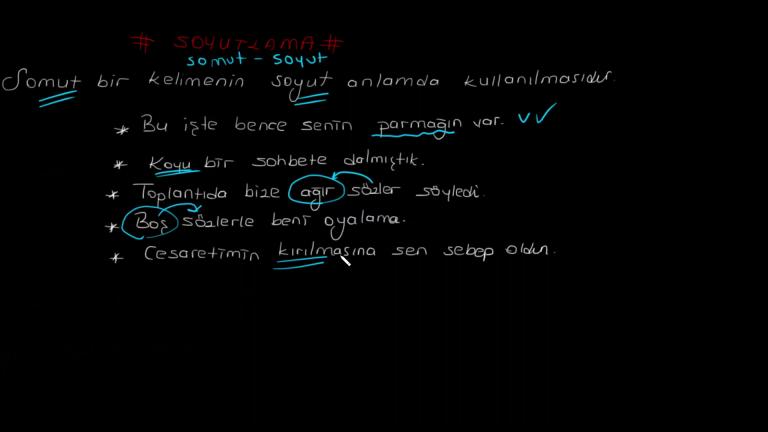 # SOYUTLAMA #
somut - soyut
Somut bir kelimenin soyut anlamda kullanılmasıdır.
* Bu işte bence senin parmağın var. ✓✓
* Koyu bir sohbete dalmıştık.
* Toplantıda bize ağır sözler söyledi.
* Boş sözlerle beni oyalama.
* Cesaretimin kırılmasına sen sebep oldun.